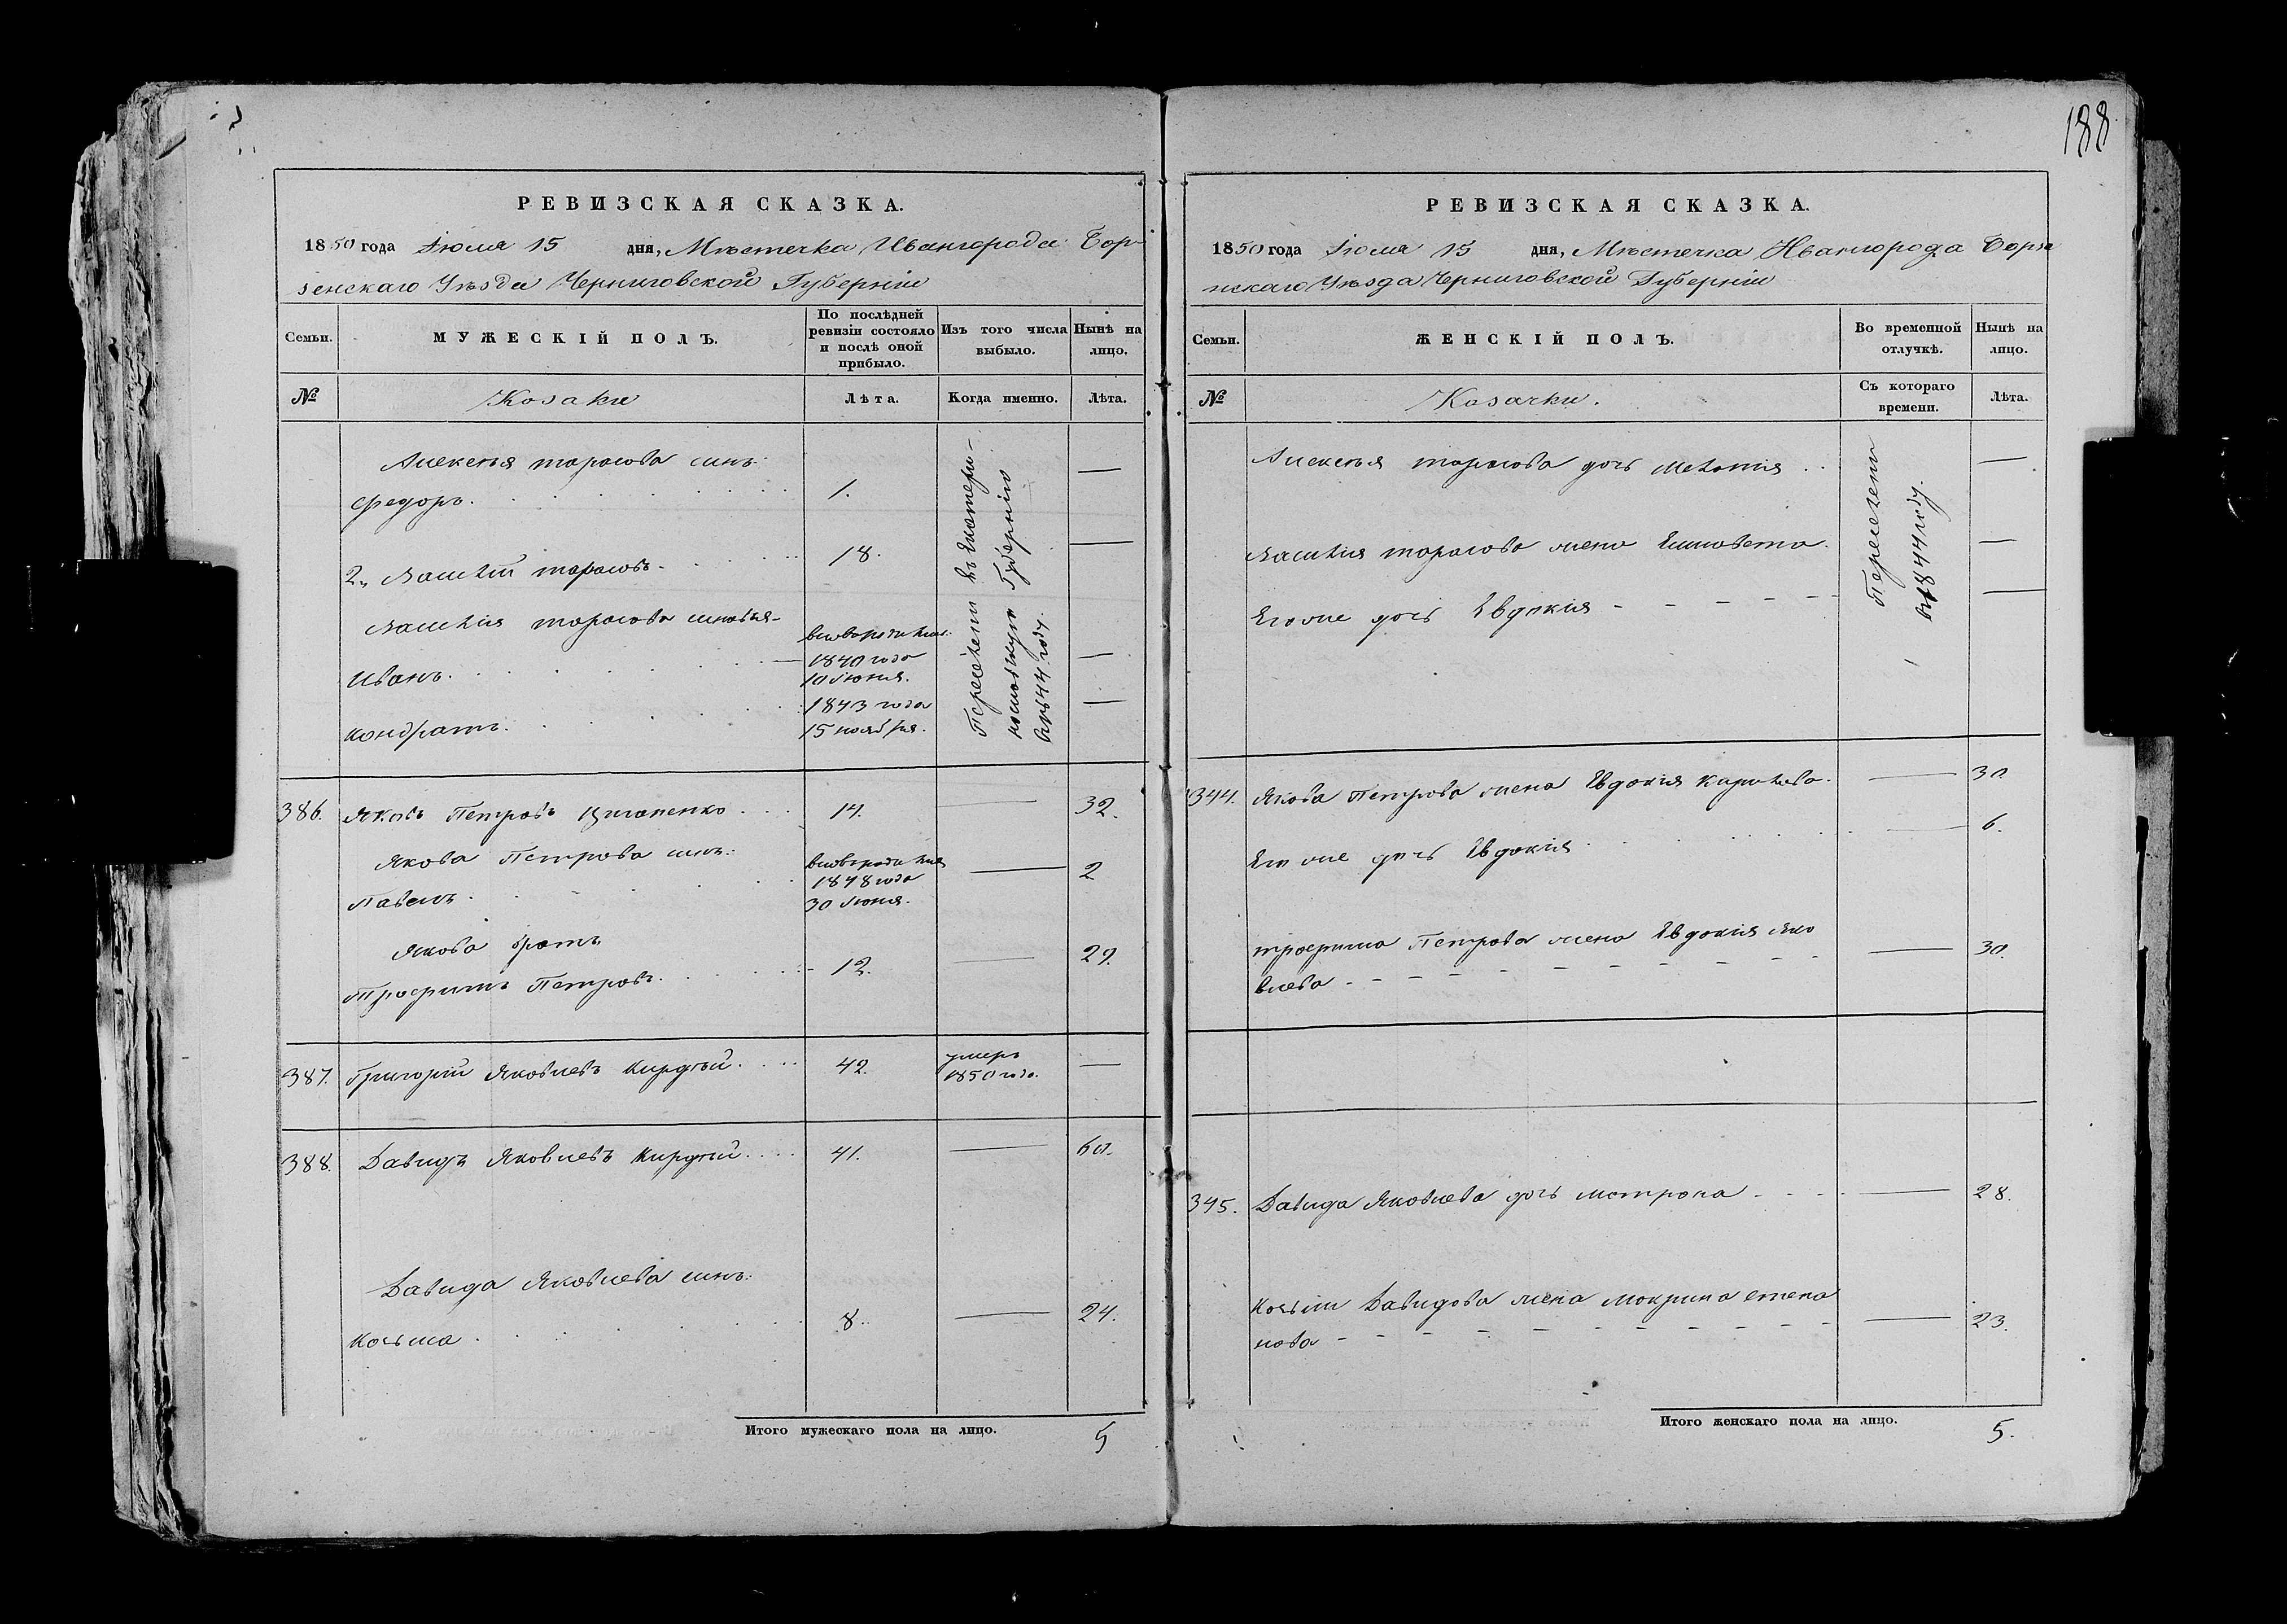 188
РЕВИЗСКАЯ СКАЗКА.
1850 года Іюля 15 дня, Мѣстечка Ивангорода Бор-
зенскаго Уѣзда Черниговской Губерніи
Семьи.
МУЖЕСКІЙ ПОЛЪ.
По послѣдней
ревизіи состояло
и послѣ оной
прибыло.
Изъ того числа
выбыло.
Нынѣ на
лицо.
№
Козаки
Лѣта.
Когда именно.
Лѣта.
Алексѣя Тарасова сынъ:
Федоръ. 1. —
2., Василій Тарасовъ. 18. —
Василія Тарасова сыновья
Иванъ. вновърожден. 1840 года 10 Июня. —
Кондратъ. 1843 года 15 ноября. —
Переселены въ Екатери-
нославскую Губернію
въ 1844 году.
386. Яковъ Петровъ Циганенко 14. — 32.
Якова Петрова сынъ:
Павелъ. 1848 года 30 Июня. — 2
Якова братъ
Трофимъ Петровъ. 12. — 29.
387. Григорій Яковлевъ Кирдѣй. 42. умеръ 1850 года. —
388. Давидъ Яковлевъ Кирдѣй. 41. — 60.
Давида Яковлева сынъ:
Козьма 8. — 24.
Итого мужескаго пола на лицо. 5
РЕВИЗСКАЯ СКАЗКА.
1850 года Іюля 15 дня, Мѣстечка Ивангорода Борзе
нскаго Уѣзда Черниговской Губерніи
Семьи.
ЖЕНСКІЙ ПОЛЪ.
Во временной
отлучкѣ.
Нынѣ на
лицо.
№
Козачки.
Съ котораго
времени.
Лѣта.
Алексѣя Тарасова дочь —
Василія Тарасова жена Елисовета —
Его же дочь Евдокія —
Переселены
въ 1844 году.
344. Якова Петрова жена Евдокія — 30.
Его же дочь Евдокія — 6.
Трофима Петрова жена Евдокія Яко
влева — 30.
345. Давида Яковлева дочь — 28.
Козьми Давидова жена Мокрина Степа
нова — 23.
Итого женскаго пола на лицо. 5.